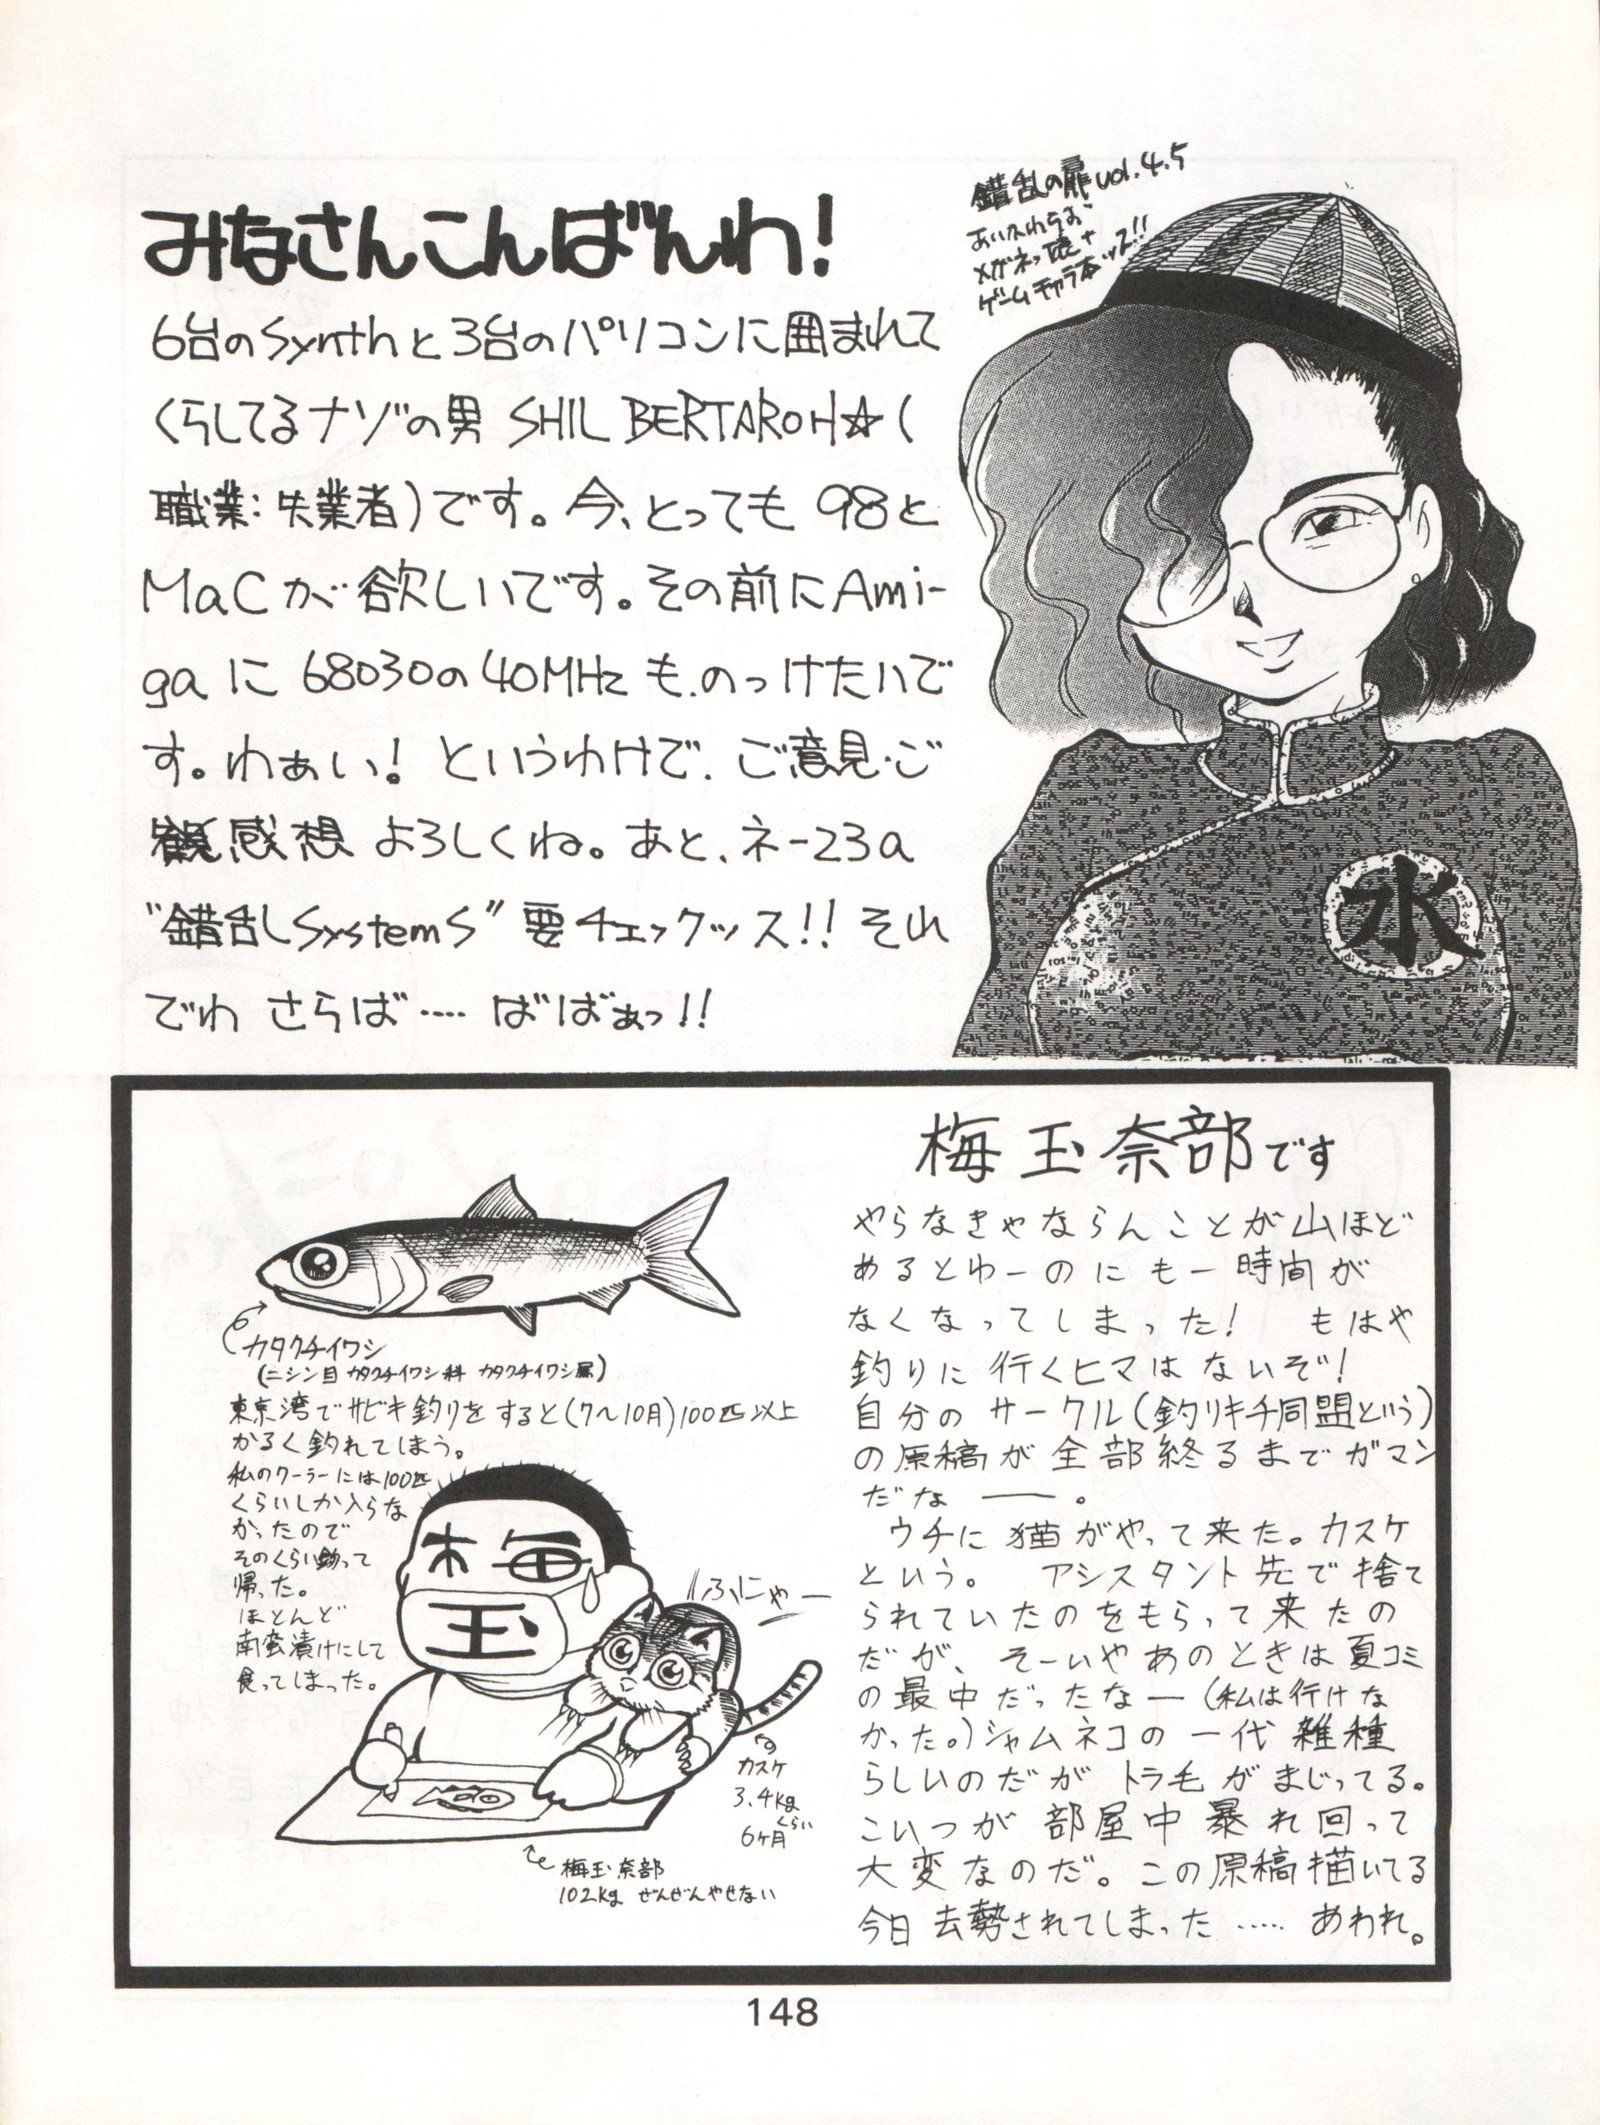 みなさんこんばんわ!
6台のSynthと3台のパソコンに囲まれて
くらしてるナゾの男 SHIL BERTAROH☆(
職業:失業者)です。今、とっても 98と
MaCが欲しいです。その前にAmi-
gaに68030の40MHzも、のっけたいで
す。わぁい! というわけで、ご意見・ご
感想 よろしくね。あと、ネー23a
"錯乱SystemS"要チェックッス!! それ
でわ さらば…… ばばぁっ!!
錯乱の扉vol.4.5
あいかわらず
メガネっ娘+
ゲームキャラ本ッス!!
水
梅玉奈部です
やらなきゃならんことが山ほど
あるとゆーのにもー時間が
なくなってしまった! もはや
釣りに行くヒマはないぞ!
自分のサークル(釣りキチ同盟という)
の原稿が全部終るまでガマン
だなー。
ウチに猫がやって来た。カスケ
という。 アシスタント先で捨て
られていたのをもらって来たの
だが、そーいやあのときは夏コミ
の最中だったなー(私は行けな
かった。)シャムネコの一代雑種
らしいのだがトラ毛がまじってる。
こいつが部屋中暴れ回って
大変なのだ。この原稿描いてる
今日去勢されてしまった…… あわれ。
カタクチイワシ
(ニシン目 カタクチイワシ科 カタクチイワシ属)
東京湾でサビキ釣りをすると(7〜10月)100匹以上
かるく釣れてしまう。
私のクーラーには100匹
くらいしか入らな
かったので
そのくらい釣って
帰った。
ほとんど
南蛮漬けにして
食ってしまった。
梅
玉
ふにゃー
カスケ
3.4kg
くらい
6ケ月
梅玉奈部
102kg ぜんぜんやせない
148